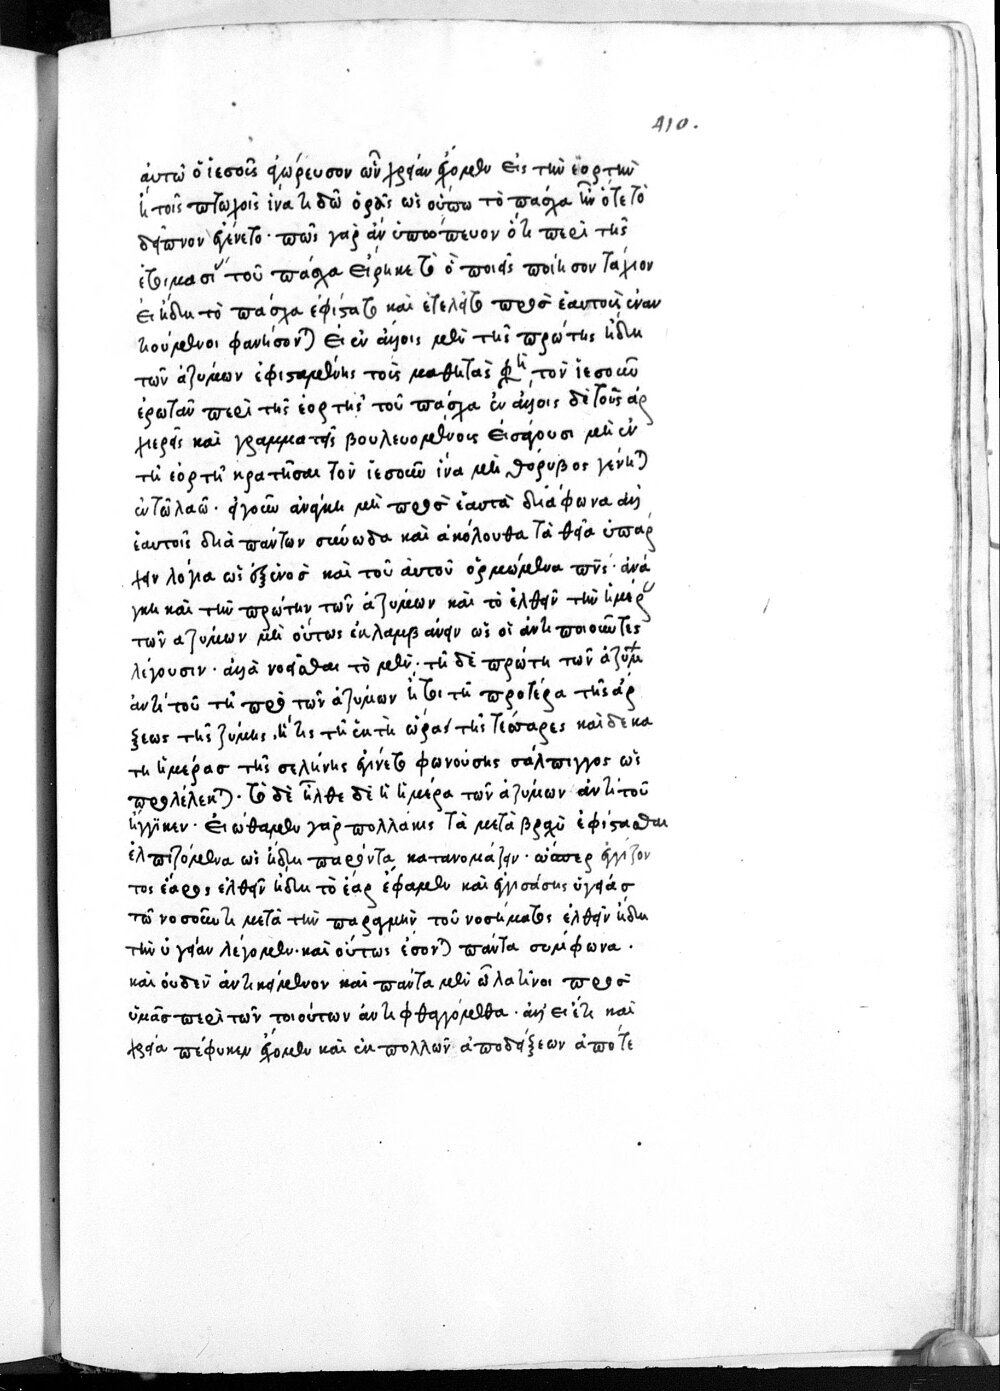 410.
αὐτῶ ὁ ἰησοῦς ἀγόρευσον ὧν χρείαν ἔχομεν εἰς τὴν ἑορτὴν
ἢ τοῖς πτωχοῖς ἵνα τι δῶ ὁρᾶς ὡς οὔπω τὸ πάσχα ἦν ὅτε τὸ
δεῖπνον ἐγένετο· πῶς γὰρ ἂν ὑπώπτευον ὅτι περὶ τῆς
ἑτοιμασίας τοῦ πάσχα εἴρηκε τὸ ὃ ποιεῖς ποίησον τάχιον
εἰ ἤδη τὸ πάσχα ἐφίστατο καὶ ἐτελεῖτο πρὸς ἑαυτοὺς ἐναν
τιούμενοι φανήσονται εἰ ἐν ἄλλοις μὲν τῆς πρώτης ἤδη
τῶν ἀζύμων ἐφισταμένης τοὺς μαθητὰς φησὶ τὸν ἰησοῦν
ἐρωτᾶν περὶ τῆς ἑορτῆς τοῦ πάσχα ἐν ἄλλοις δὲ τοὺς ἀρ
χιερεῖς καὶ γραμματεῖς βουλευομένους εἰσάγουσι μὴ ἐν
τῆ ἑορτῆ κρατῆσαι τὸν ἰησοῦν ἵνα μὴ θόρυβος γένηται
ἐν τῶ λαῶ· ἀνάγκη μὴ πρὸς ἑαυτὰ διάφωνα ἀλλ'
ἑαυτοῖς διὰ πάντων συνωδὰ καὶ ἀκόλουθα τὰ θεῖα ὑπάρ
χειν λόγια ὡς ἐξ ἑνὸς καὶ τοῦ αὐτοῦ ὁρμώμενα πνς· ἀνά
γκη καὶ τὴν πρώτην τῶν ἀζύμων καὶ τὸ ἐλθεῖν τὴν ἡμέραν
τῶν ἀζύμων μὴ οὕτως ἐκλαμβάνειν ὡς οἱ ἀντιποιοῦντες
λέγουσιν· ἀλλὰ νοεῖσθαι τὸ μὲν· τῆ δὲ πρώτη τῶν ἀζύμων
ἀντὶ τοῦ τῆ πρὸ τῶν ἀζύμων ἤτοι τῆ προτέρα τῆς ἄρ
ξεως τῆς ζύμης, ἥτις τῆ ἕκτη ὥρα τῆς τεσσαρες καὶ δεκά
τη ἡμέρας τῆς σελήνης ἐγίνετο φωνούσης σάλπιγγος ὡς
προλέλεκται· τὸ δὲ ἦλθε δὲ ἡ ἡμέρα τῶν ἀζύμων ἀντὶ τοῦ
ἤγγικεν· εἰώθαμεν γὰρ πολλάκις τὰ μετὰ βραχὺ ἐφίστασθαι
ἐλπιζόμενα ὡς ἤδη παρόντα κατονομάζειν· ὥσπερ ἐγγίζον
τος ἔαρος ἐλθεῖν ἤδη τὸ ἔαρ ἔφαμεν καὶ ἐγγισάσης ὑγείας
τῶ νοσοῦντι μετὰ τὴν παρακμὴν τοῦ νοσήματος ἐλθεῖν ἤδη
τὴν ὑγείαν λέγομεν· καὶ οὕτως ἔσονται πάντα σύμφωνα·
καὶ οὐδὲν ἀντικείμενον καὶ πάντα μὲν ὦ λατῖνοι πρὸς
ὑμᾶς περὶ τῶν τοιούτων ἀντιφθεγγόμεθα· ἀλλ' εἰ ἔτι καὶ
χρεία πέφυκεν ἔχομεν καὶ ἐκ πολλῶν ἀποδείξεων ἀπότε